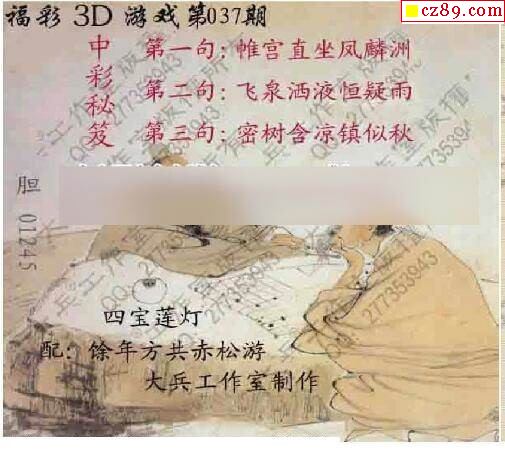 福彩 3D 游戏第037期
cz89.com
中彩秘笈
第一句：帷宫直坐凤麟洲
第二句：飞泉洒液恒疑雨
第三句：密树含凉镇似秋
胆 01245
四宝莲灯
配：馀年方共赤松游
大兵工作室制作
QQ：277353943